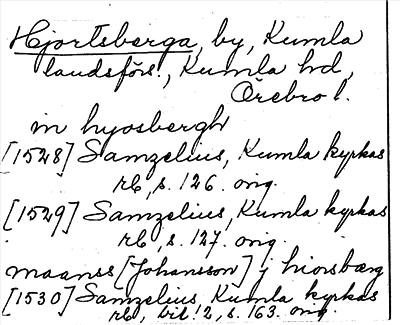 Hjortsberga, by, Kumla
landsförs., Kumla hd,
Örebro l.
in hyosbergh
[1528] Samzelius, Kumla kyrkas
rb, s. 126. orig.
[1529] Samzelius, Kumla kyrkas
rb, s. 127. orig.
maanss [Johansson] j hiorsbærg
[1530] Samzelius, Kumla kyrkas
rb, bil. 2, s. 163. orig.